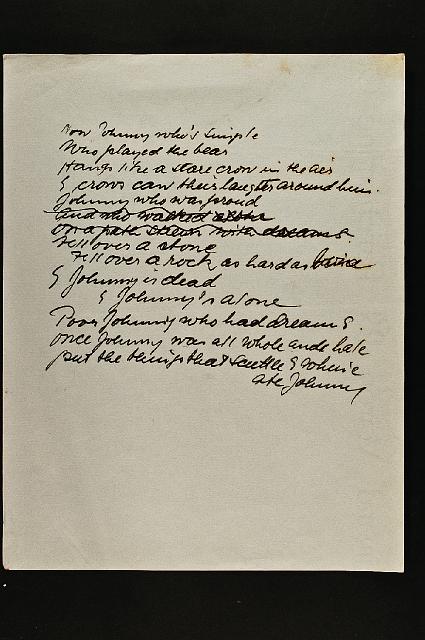 Now Johnny who's simple
Who played the bear
Hangs like a scare crow in the air
& crows caw their laughter around him.
Johnny who was proud
and who walked alone
on a path strewn with dreams
Fell over a stone
Fell over a rock as hard as
& Johnny is dead
& Johnny's alone
Poor Johnny who had dreams
once Johnny was all whole and hale
but the things that scuttle & whine
ate Johnny